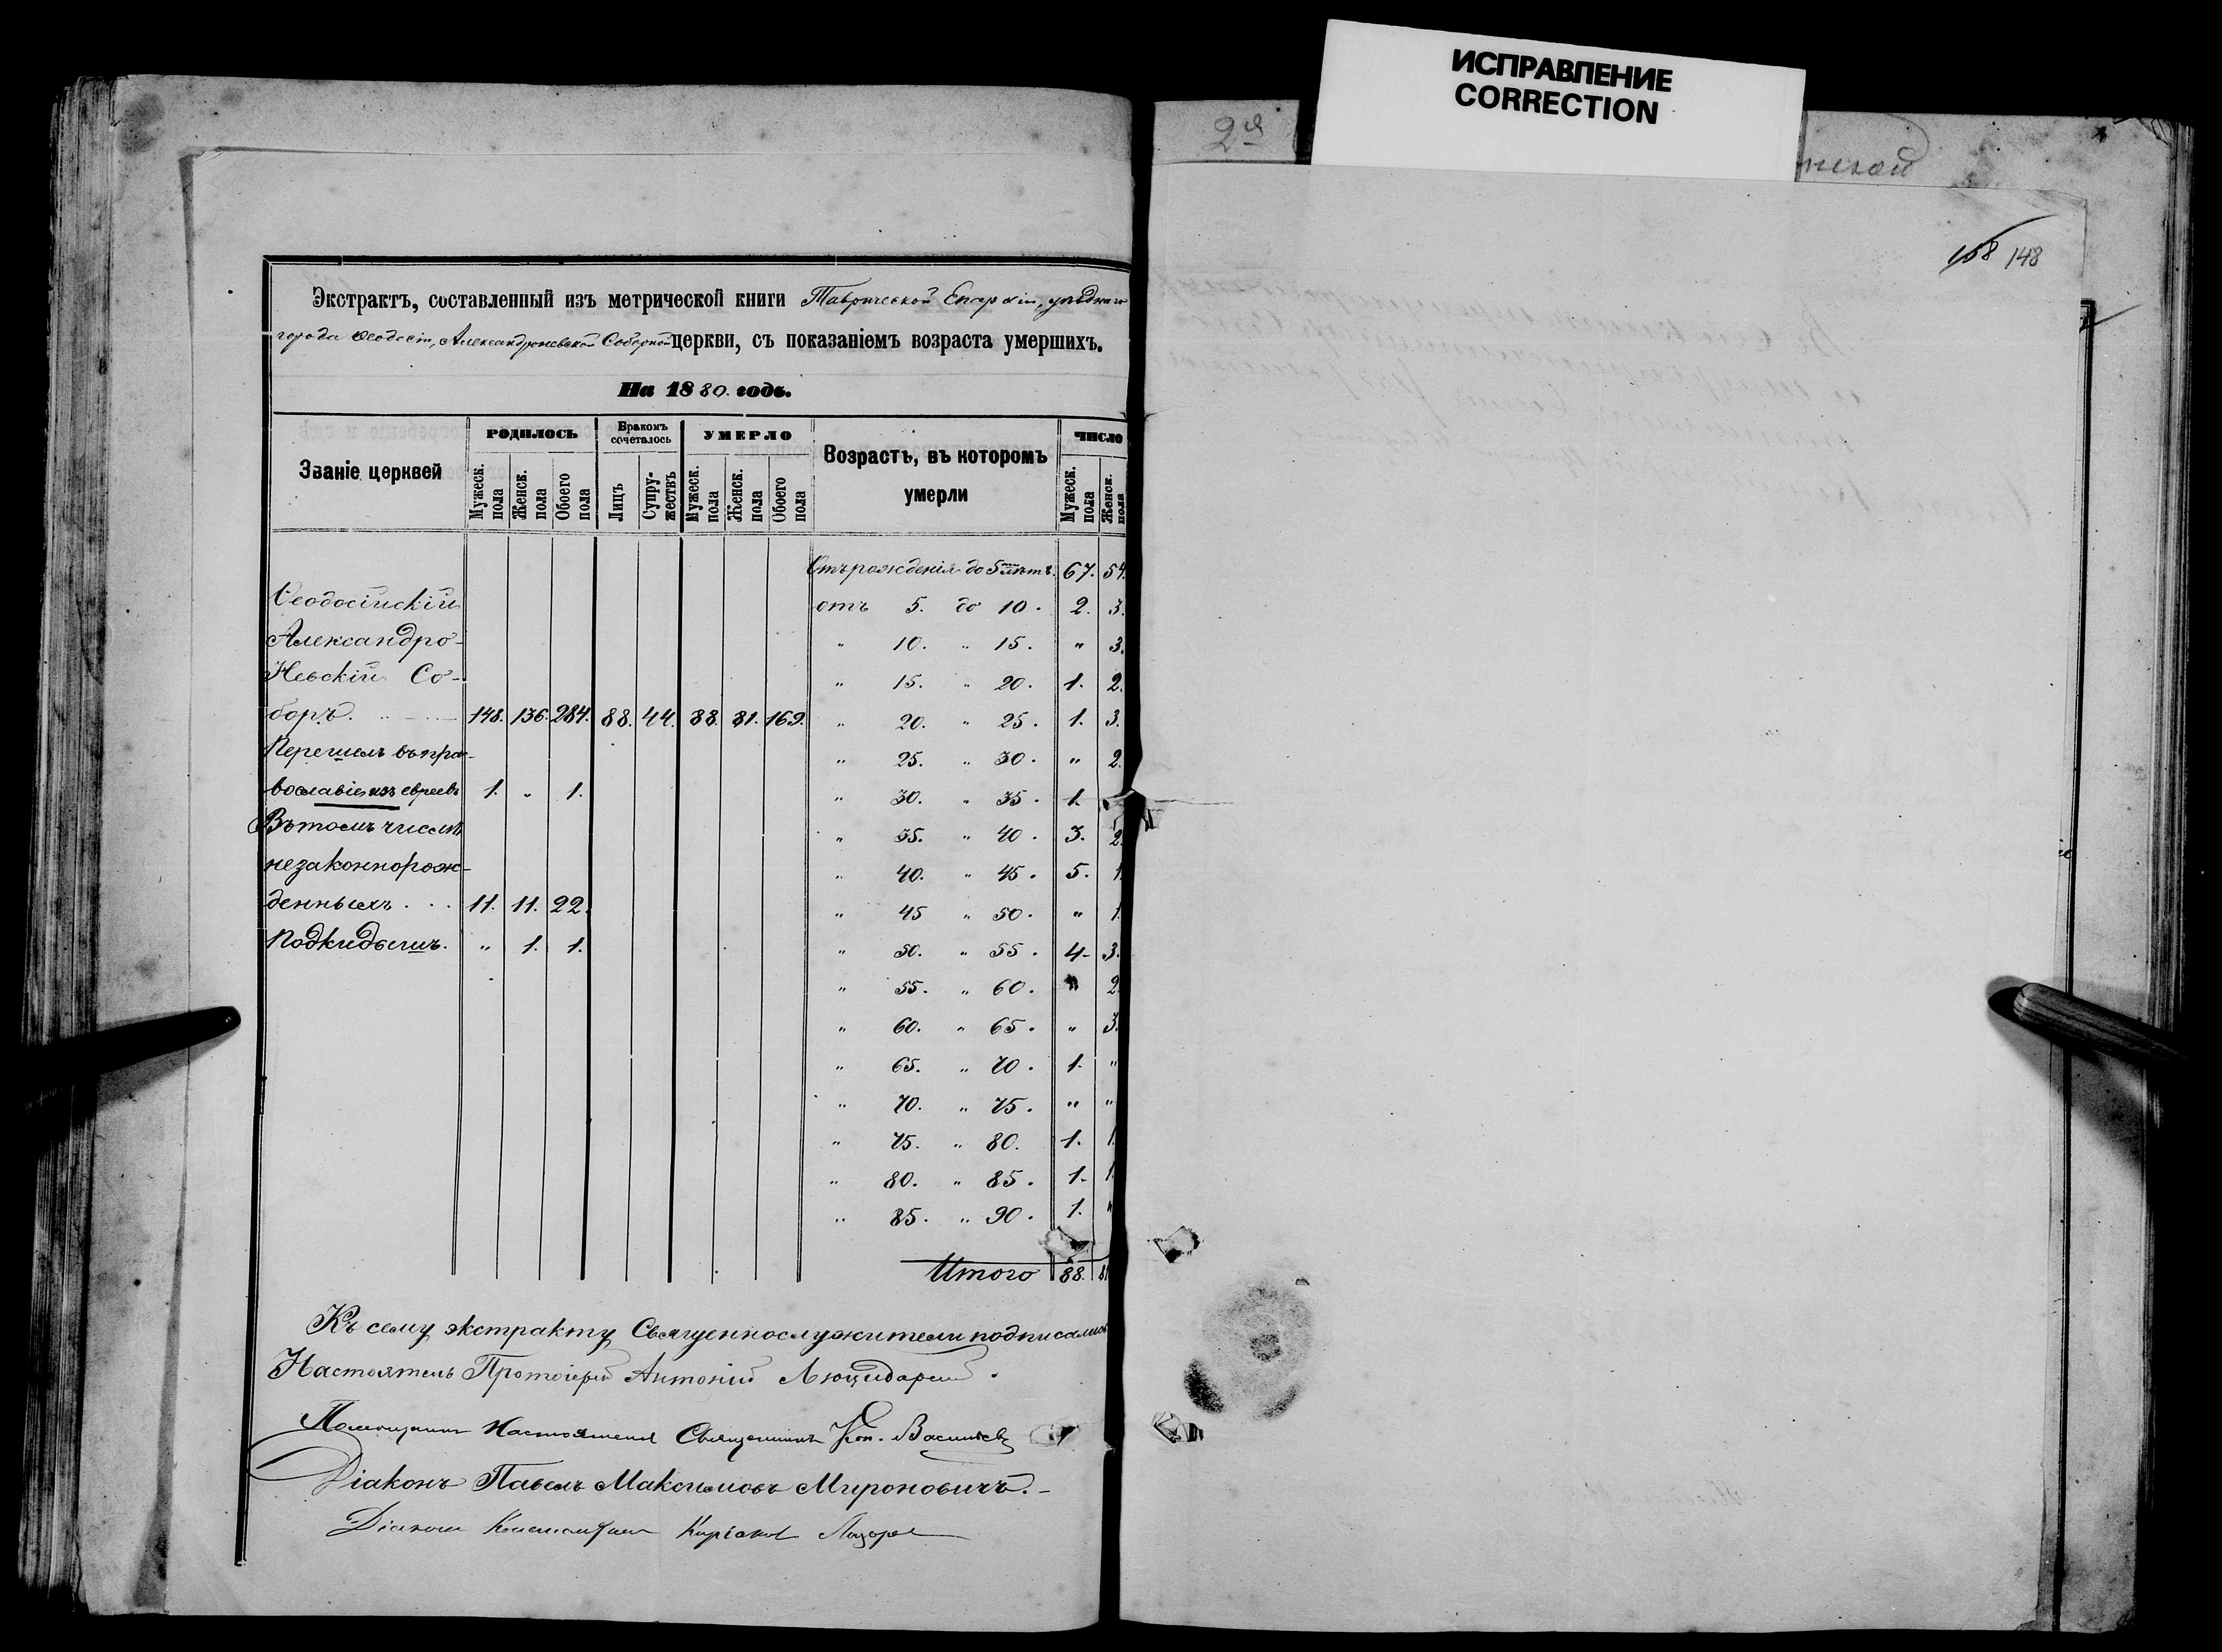 Экстрактъ, составленный изъ метрической книги Таврической Епархіи, уѣзднаго
города Ѳеодосіи, Александроневской Соборной церкви, съ показаніемъ возраста умершихъ.
На 1880. годъ.
Званіе церквей
РОДИЛОСЬ
Бракомъ сочеталось
УМЕРЛО
Возрастъ, въ которомъ умерли
ЧИСЛО
Мужеск. пола
Женск. пола
Обоего пола
Лицъ
Супружествъ
Мужеск. пола
Женск. пола
Обоего пола
Мужеск. пола
Женск. пола
Отъ рожденія до 5ти лѣтъ. 67. 54.
Ѳеодосійскій
отъ 5. до 10. 2. 3.
Александро-
" 10. " 15. " 3.
Невскій Со-
" 15. " 20. 1. 2.
боръ. 148. 136. 284. 88. 44. 88. 81. 169.
" 20. " 25. 1. 3.
Перешелъ въ пра-
" 25. " 30. " 2.
вославіе изъ евреевъ 1. " 1.
" 30. " 35. 1.
Въ томъ числѣ
" 35. " 40. 3. 2.
незаконнорож-
" 40. " 45. 5. 1.
денныхъ . . . 11. 11. 22.
" 45 " 50. " 1.
Подкидышъ. " 1. 1.
" 50. " 55. 4. 3.
" 55. " 60. " 2.
" 60. " 65. " 3.
" 65. " 70. 1. "
" 70. " 75. " "
" 75. " 80. 1. 1.
" 80. " 85. 1. 1.
" 85. " 90. 1. "
Итого 88. 81
Къ сему экстракту Священнослужители подписались
Настоятель Протоіерей Антоній
Помощникъ Настоятеля Священникъ Кон. Васильевъ
Діаконъ Павелъ Максимовъ Мироновичъ.
Діаконъ Константинъ
ИСПРАВЛЕНИЕ
CORRECTION
2й
нской
158 148